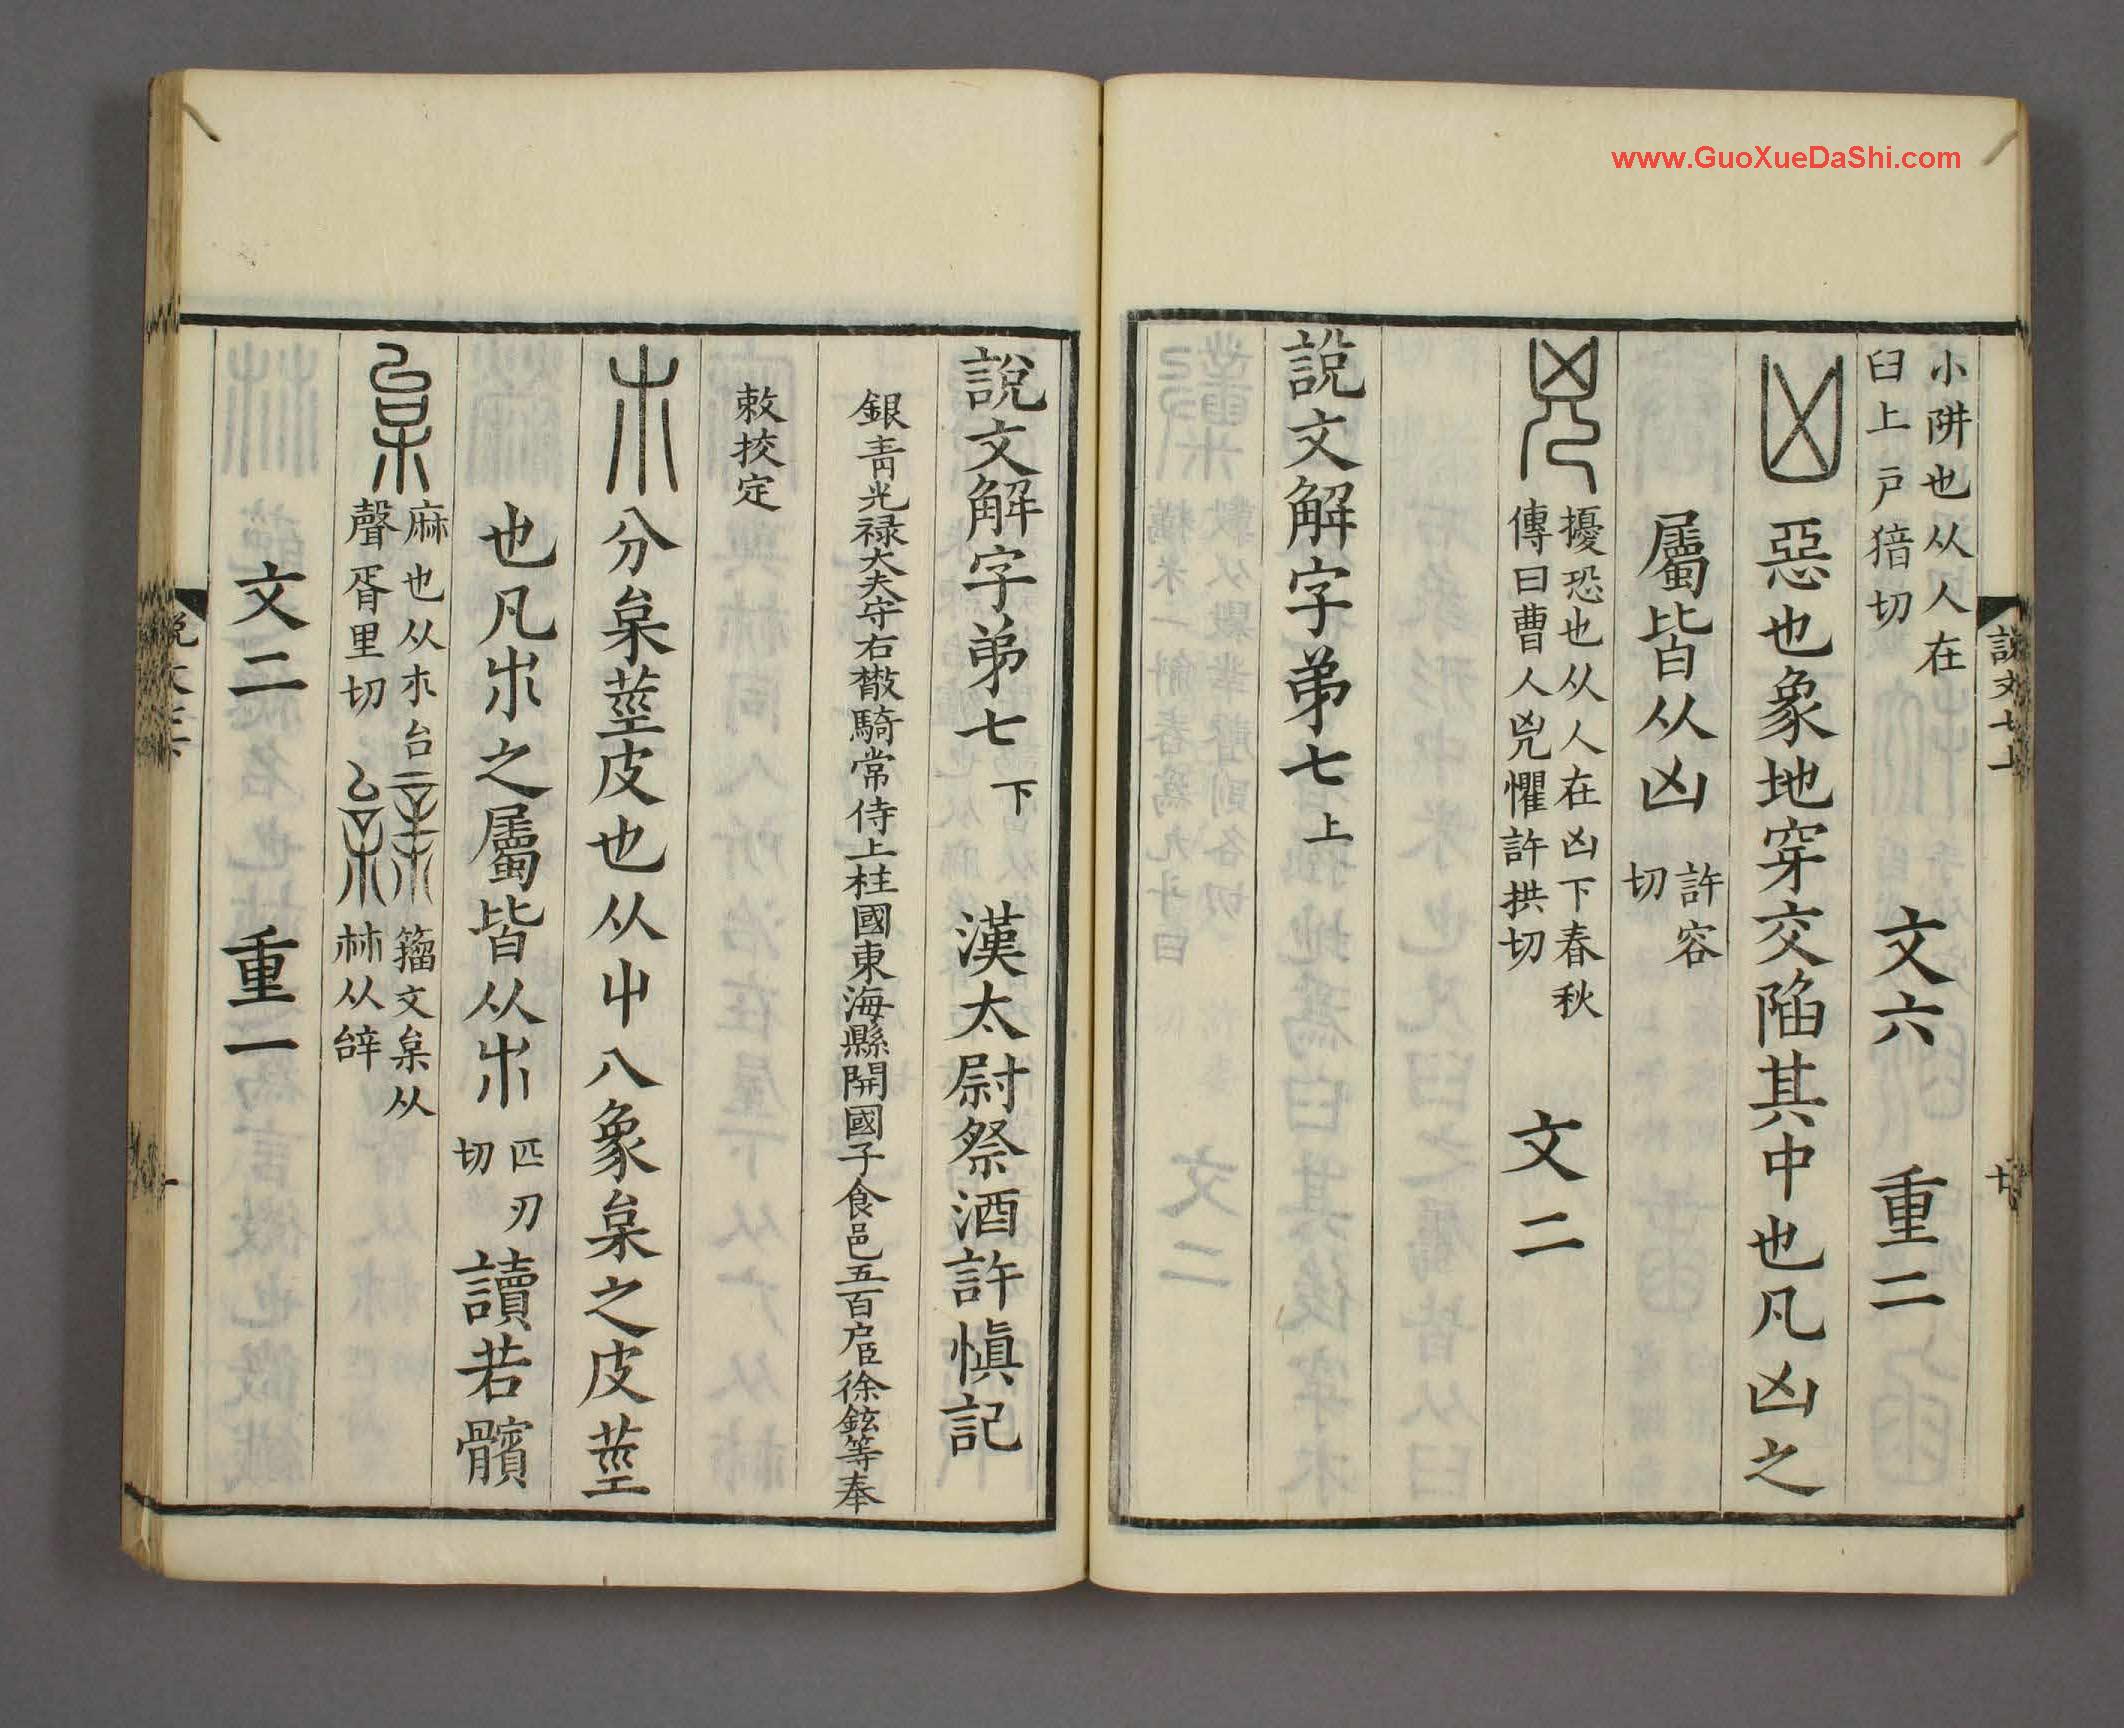 www.GuoXueDaShi.com
說文七上
小阱也从人在
臼上戶猪切
文六 重二
凶 惡也象地穿交陷其中也凡凶之
屬皆从凶 許容切
兇 擾恐也从人在凶下春秋
傳曰曹人兇懼許拱切
文二
說文解字弟七上
說文解字弟七下 漢太尉祭酒許慎記
銀青光禄大夫守右散騎常侍上柱國東海縣開國子食邑五百户臣徐鉉等奉
敕挍定
𣎳 分枲莖皮也从屮八象枲之皮莖
也凡𣎳之屬皆从𣎳 匹刃切 讀若髕
枲 麻也从𣎳台
聲胥里切
籀文枲从
𣏟从辝
文二 重一